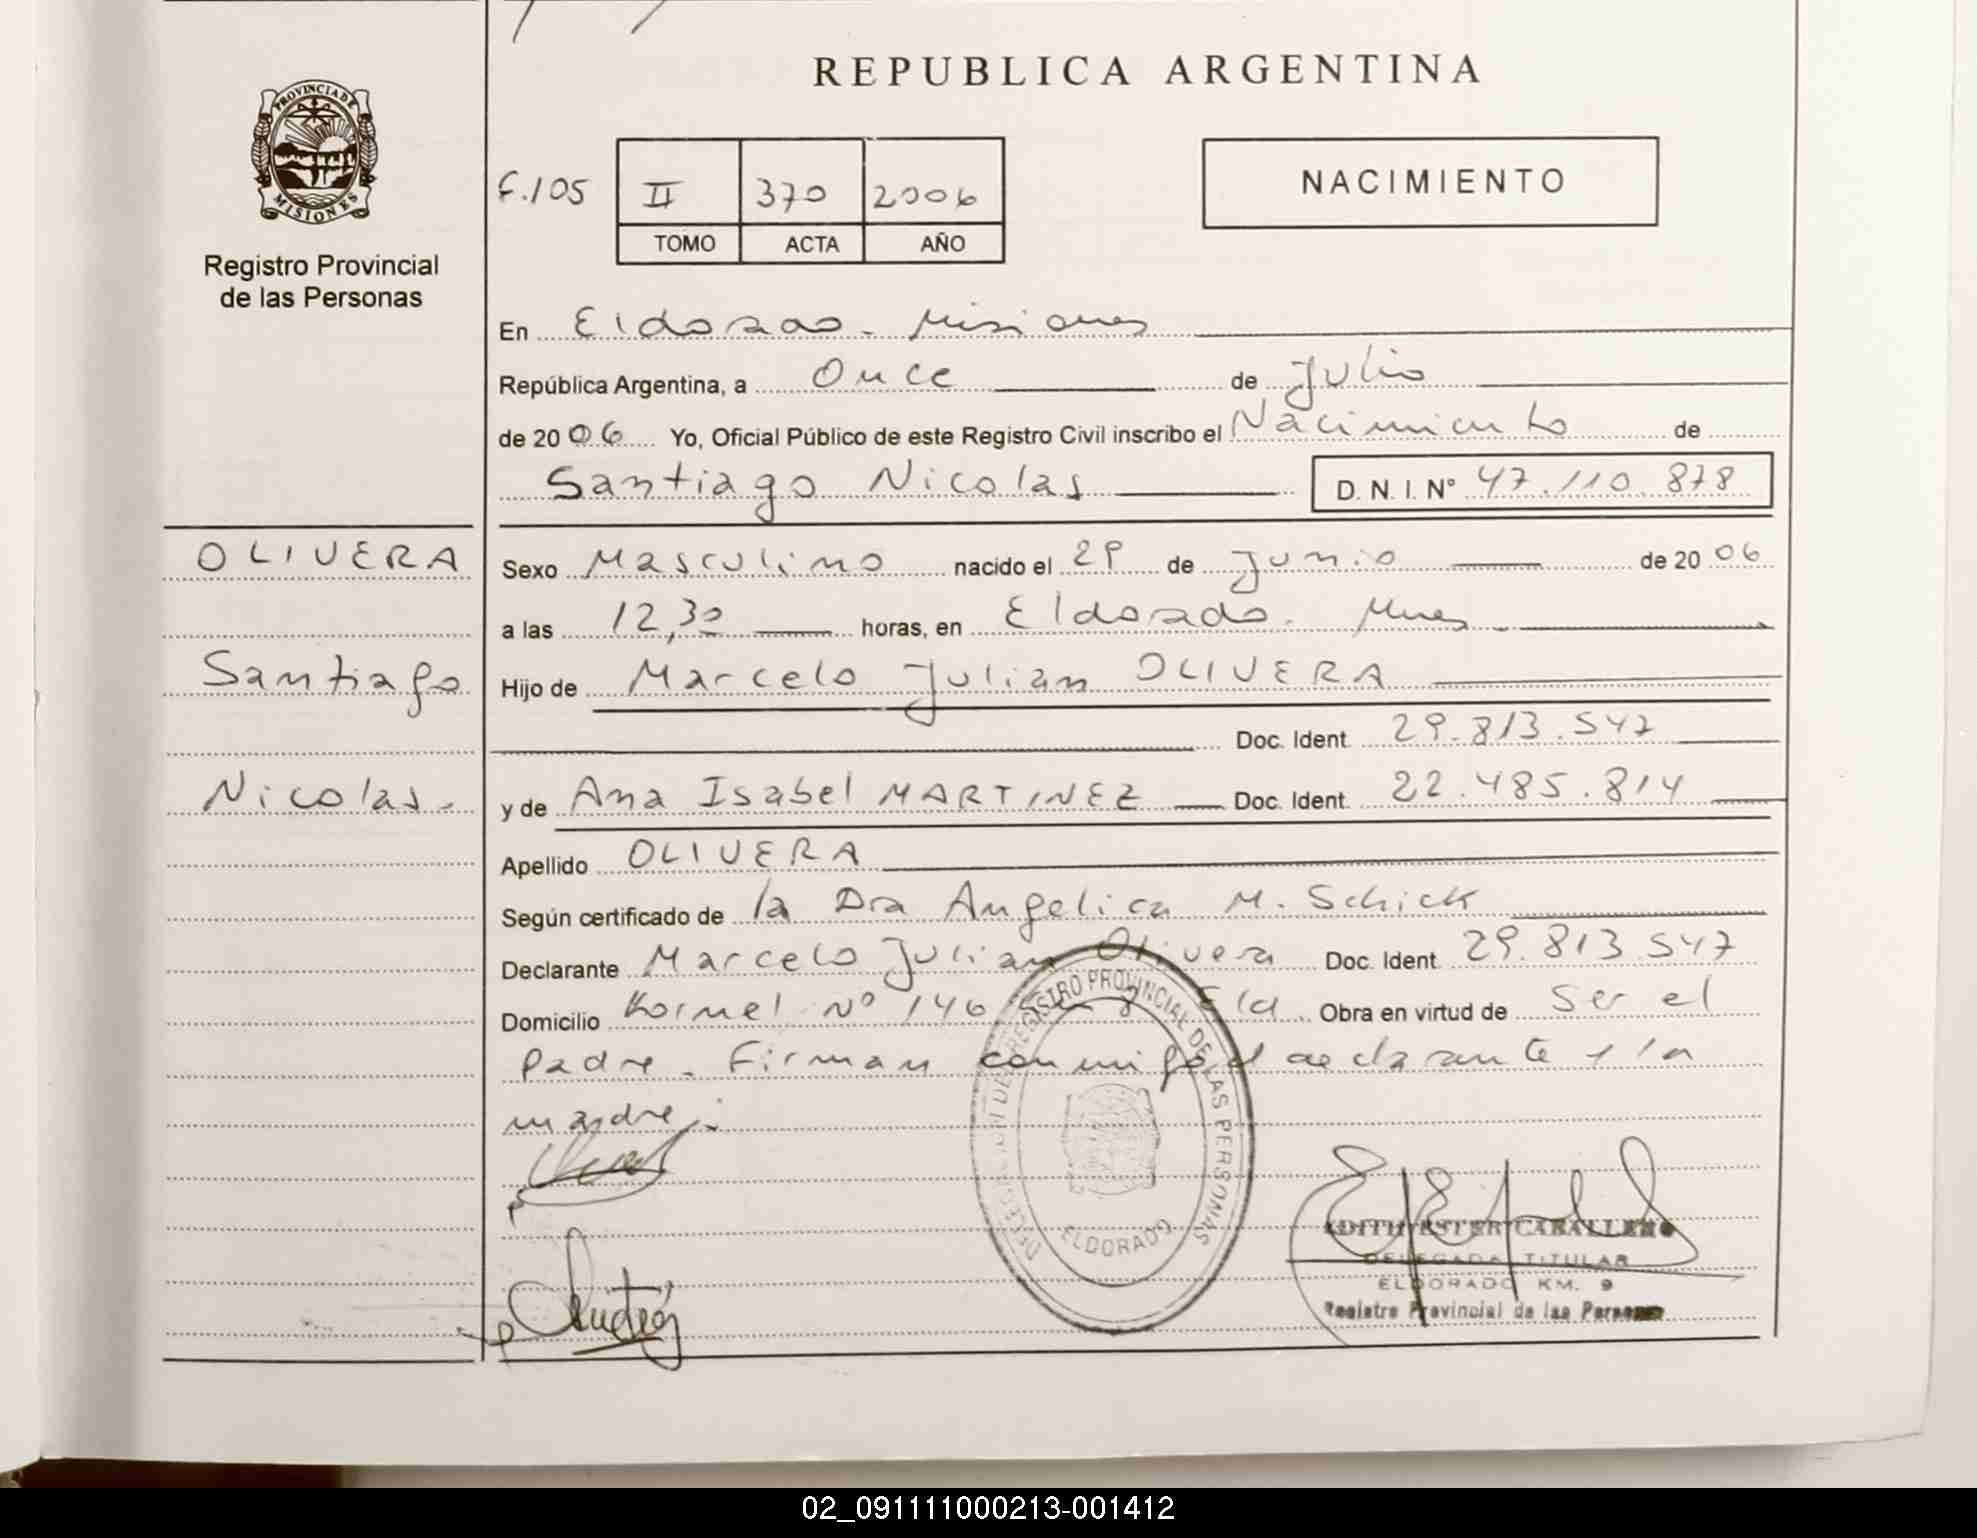 REPUBLICA ARGENTINA
PROVINCIA DE MISIONES
Registro Provincial
de las Personas
F.105 II 370 2006
TOMO ACTA AÑO
NACIMIENTO
En Eldorado - Misiones
República Argentina, a Once de Julio
de 2006 Yo, Oficial Público de este Registro Civil inscribo el Nacimiento de
Santiago Nicolas D. N. I. N° 47.110.878
OLIVERA
Santiago
Nicolas.
Sexo Masculino nacido el 29 de Junio de 2006
a las 12,30 horas, en Eldorado. Mnes.
Hijo de Marcelo Julian OLIVERA
Doc. Ident. 29.813.547
y de Ana Isabel MARTINEZ Doc. Ident. 22.485.814
Apellido OLIVERA
Según certificado de la Dra Angelica M. Schick
Declarante Marcelo Julian Olivera Doc. Ident. 29.813.547
Domicilio Kornel N° 146 Eld. Obra en virtud de Ser el
Padre. Firman conmigo el declarante y la
madre.
DELEGACION DEL REGISTRO PROVINCIAL DE LAS PERSONAS
ELDORADO
EDITH ESTER CABALLERO
DELEGADA TITULAR
ELDORADO KM. 9
Registro Provincial de las Personas
02_091111000213-001412